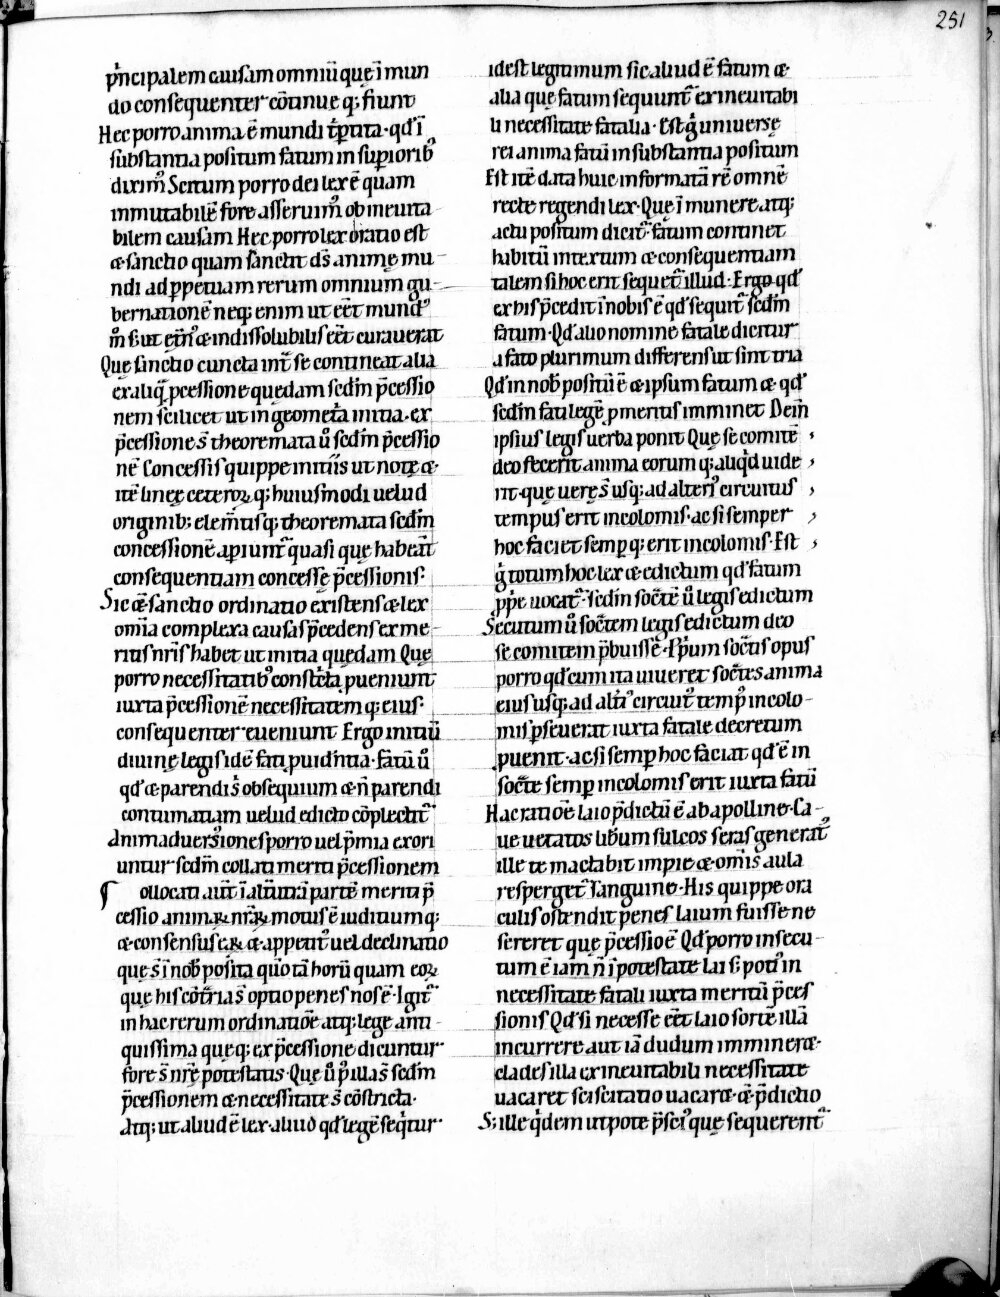 251
p̍ncipalem causam omniū quę ī mun
do consequenter cōtinuę q; fiunt
Hec porro anima ē mundi t̍p̱tita · qd̓ ī
substantia positum fatum in sup̱iorib᷒
dixim᷒ Scitum porro dei lex ē quam
inmutabilē fore asseruim᷒ ob ineuita
bilem causam Hec porro lex oratio est
& sanctio quam sanctit ds̄ animę mu
ndi ad p̱petuam rerum omnium gu
bernationē neq; enim ut eēt mund᷒
m̊ s; ut et̄n᷒ & indissolubilis eēt curauerat
Quę sanctio cuncta int̄ se contineat alia
ex aliq̍ p̄cessione quedam scd̄m p̄cessio
nem scilicet ut in geomet̍a initia · ex
p̄cessione s̄ theoremata ů scd̄m p̄cessio
nē Concessis quippe initiis ut notę &
itē lineę ceteroꝝ q; huiusmodi uelud
originib; elem̄tisq; theoremata scd̄m
concessionē ap̱iunt᷑ quasi quę habeāt
consequentiam concessę p̄cessionis:
Sic & sanctio ordinatio existens & lex
om̄ia complexa causas p̄cedens ex me
ritis nr̄is habet ut initia quędam Quę
porro necessitatib᷒ const̍cta ꝓueniunt
iuxta p̄cessionē necessitatem q; eius:
consequenter eueniunt Ergo initiū
diuinę legis idē fati ꝓuid̄ntia · fatū ů
qd̓ & parendi s̍ obsequium & n̄ parendi
contumatiam uelud edicto cōplectit᷑
Animaduersiones porro uel p̄mia exori
untur scd̄m collati meriti p̄cessionem
ollocati aūt ī alt̄utrā partē meriti p̄
cessio animaꝝ nr̄aꝝ motus ē iuditium q;
& consensus eaꝝ & appetit᷒ uel declinatio
quę s̄ ī nob̄ posita qm̊ tā horū quam eoꝝ
quę his cōt̄ria s̄ optio penes nos ē · Igit᷑
in hac rerum ordinatiōe atq; lege anti
quissima quęq; ex p̄cessione dicuntur
fore s̄ nr̄ę potestatis · Quę ů p̄ illas scd̄m
p̄cessionem & necessitate s̄ cōstricta ·
Atq; ut aliud ē lex · aliud qd̓ legē seq̍tur ·
id est legitimum sic aliud ē fatum &
alia quę fatum sequunt᷑ ex ineuitabi
li necessitate fatalia · Est g̍ uniuersę
rei anima fatū in substantia positum
Est itē data huic informatā rē omnē
recte regendi lex · Quę ī munere atq;
actu positum dicit᷑ fatum continet
habitū intextum & consequentiam
talem si hoc erit sequet᷑ illud · Ergo qd̓
ex his p̄cedit ī nobis ē qd̓ sequit᷑ scd̄m
fatum · Qd̓ alio nomine fatale dicitur
a fato plurimum differens ut sint tria
Qd̓ in nob̄ positū ē & ipsum fatum & qd̓
scd̄m fati legē p̱ meritis imminet Dein̄
ipsius legis uerba ponit Quę se comitē
deo fecerit anima eorum q; aliq̍d uide
rit · quę uerę s̄ usq; ad alteri᷒ circuitus
tempus erit incolomis · ac si semper
hoc faciet semp̱ q; erit incolomis · Est
g̍ totum hoc lex & edictum qd̓ fatum
ꝓp̄e uocat᷑ · scd̄m socr̄tē ů legis edictum
Secutum ů socr̄tem legis edictum deo
se comitem p̄buisse · P̍pum socr̄tis opus
porro qd̓ cum ita uiueret socr̄tes anima
eius usq; ad alt̄i᷒ circuit᷒ temp᷒ incolo
mis p̱seuerat iuxta fatale decretum
ꝓuenit · ac si semp̱ hoc faciat qd̓ ē in
socr̄te semp̱ incolomis erit iuxta fatū
Hac ratiōe laio p̄dictū ē ab apolline · Ca
ue uetatos libum sulcos seras generat᷒
ille te mactabit impie & om̄is aula
resperget᷑ sanguine · His quippe ora
culis ostendit penes laium fuisse ne
sereret quę p̄cessio ē Qd̓ porro insecu
tum ē iam n̄ ī potestate lai s; poti᷒ in
necessitate fatali iuxta meritū p̄ces
sionis Qd̓ si necesse eēt laio sortē illā
incurrere aut iā dudum imminere
clades illa ex ineuitabili necessitate
uacaret sciscitatio uacaret & p̄dictio
S; ille q̍dem utpote p̄sci᷒ quę sequerent᷑